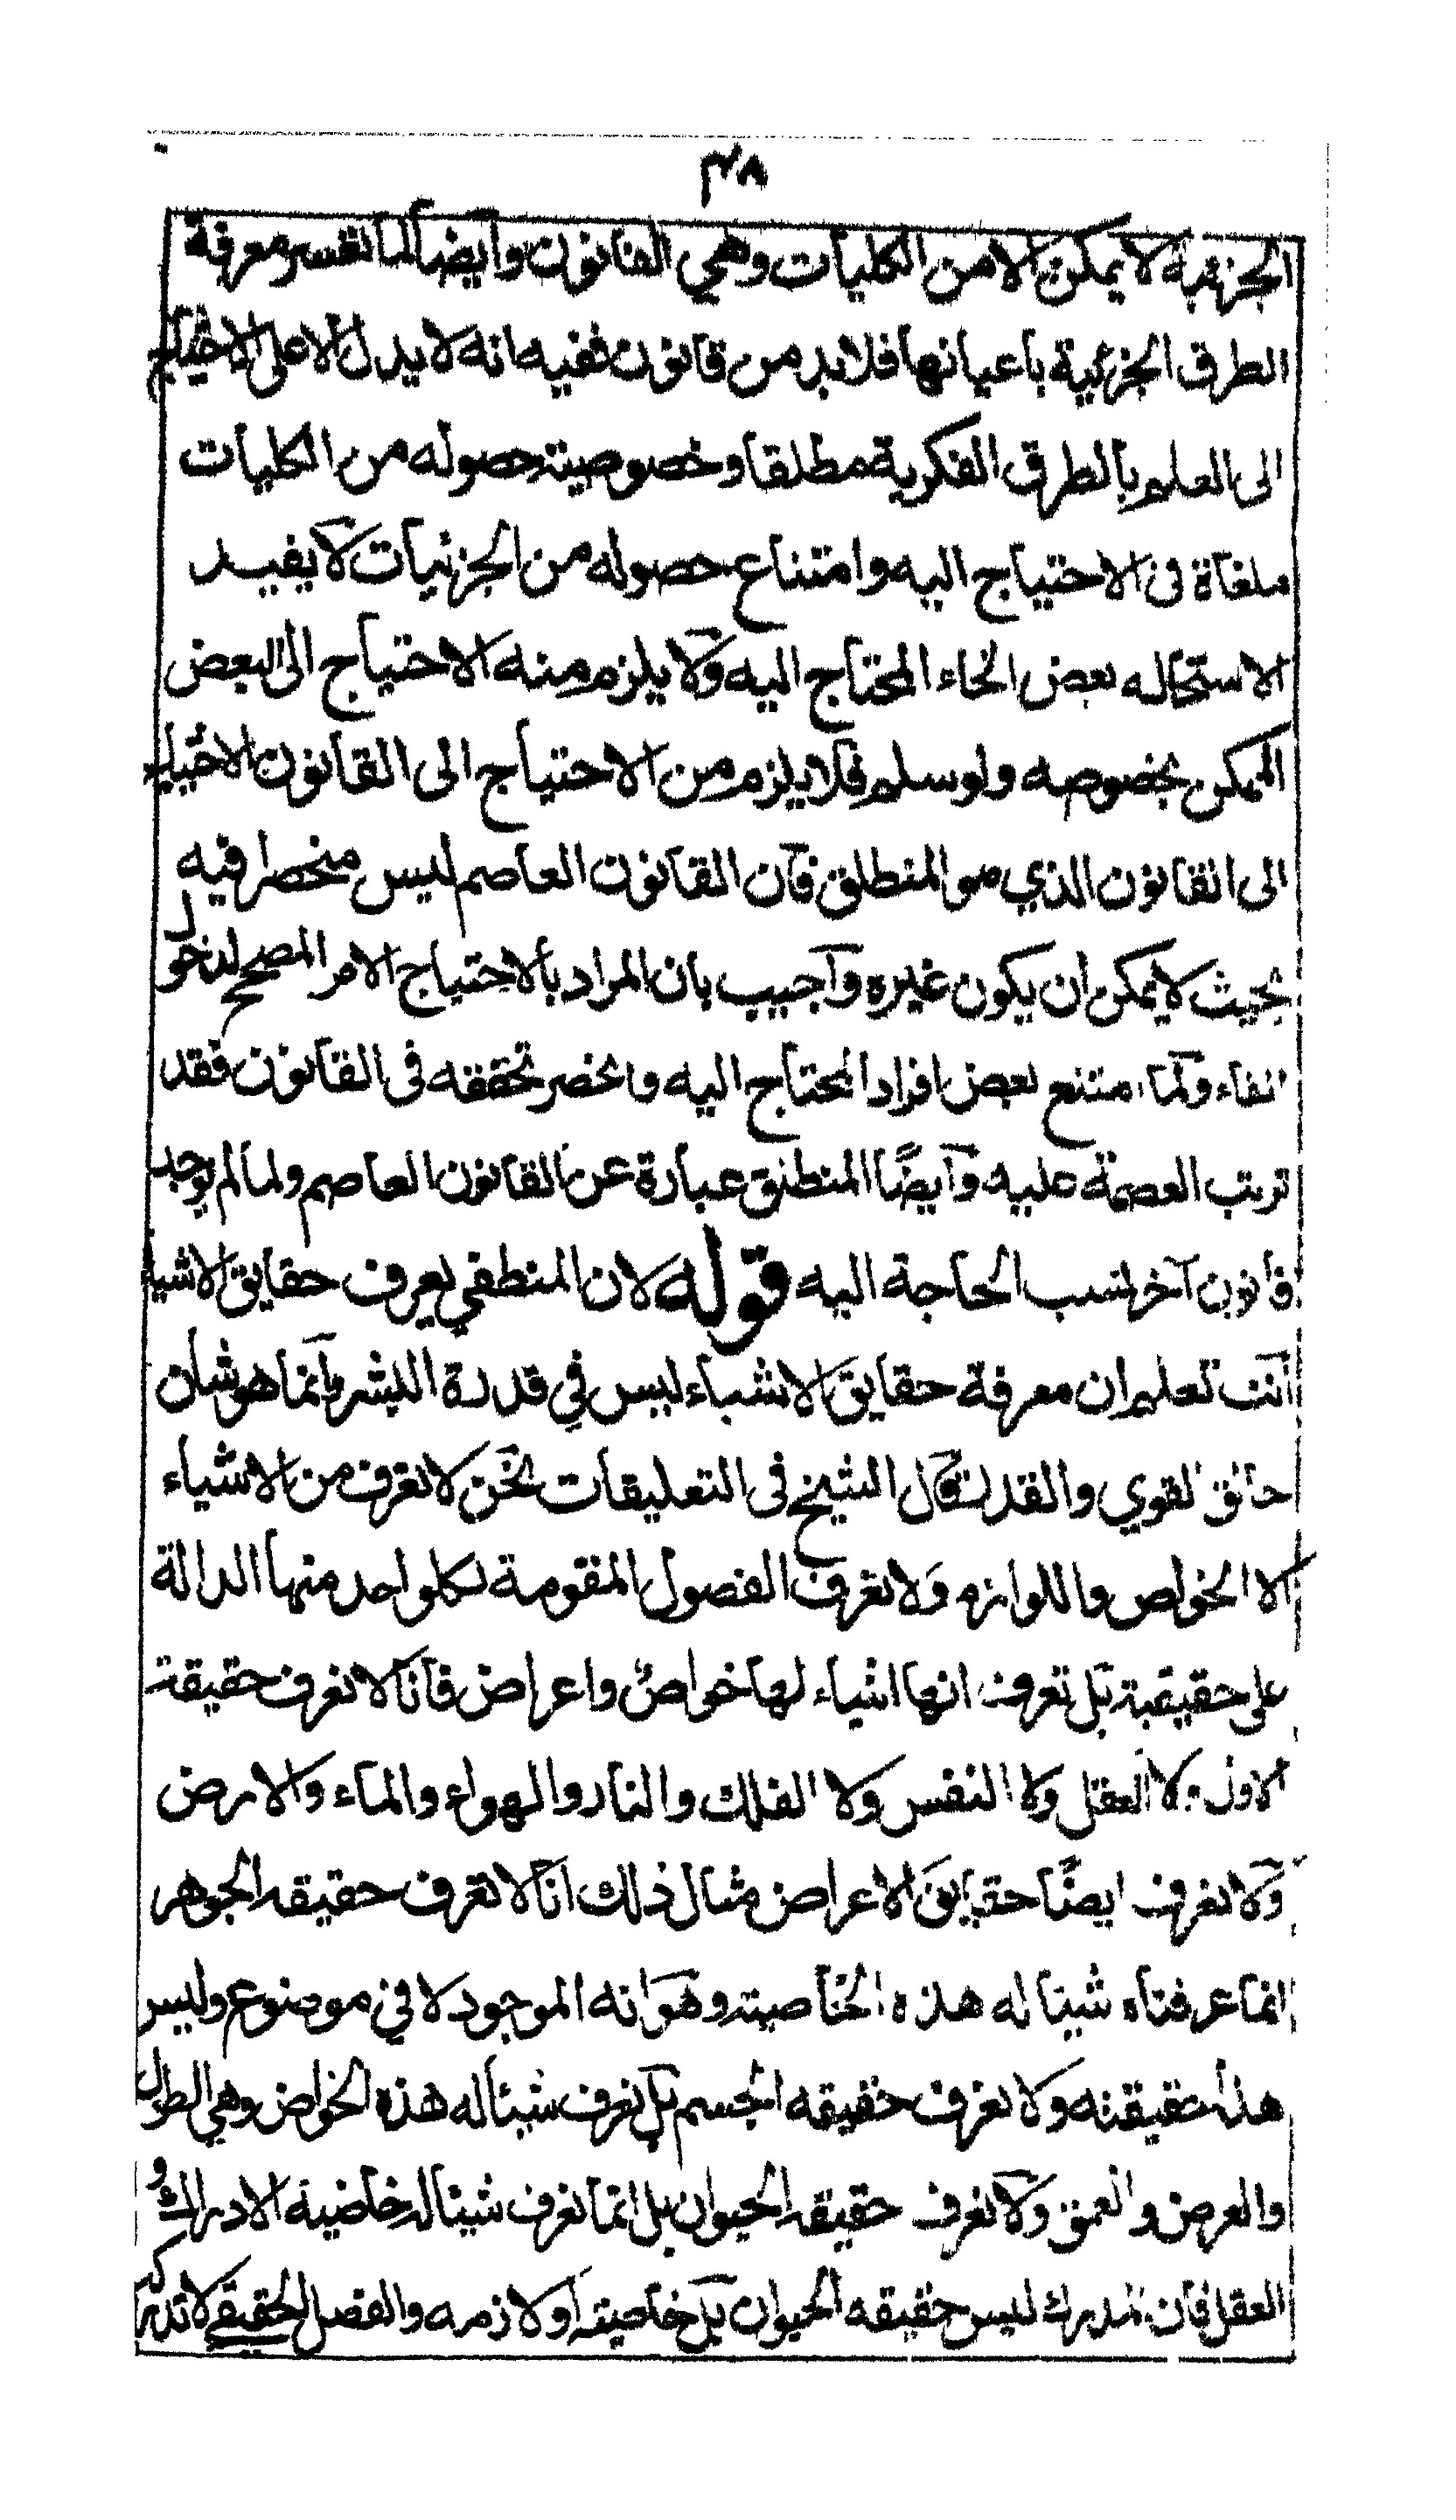 ٣٨
الجزئية لا يمكن الا من الكليات وهي القانون وايضا لما تعسر معرفة
الطرق الجزئية باعيانها فلا بد من قانون ففيه انه لا يدل الا على الاحتياج
الى العلم بالطرق الفكرية مطلقا وخصوصية حصوله من الكليات
ملغاة فى الاحتياج اليه وامتناع حصوله من الجزئيات لا يفيد
الا استحاله بعض انحاء المحتاج اليه ولا يلزم منه الاحتياج الى البعض
الممكن بخصوصه ولو سلم فلا يلزم من الاحتياج الى القانون الاحتياج
الى القانون الذي هو المنطق فان القانون العاصم ليس منحصرا فيه
بحيث لا يمكن ان يكون غيره وأجيب بان المراد بالاحتياج الامر المصحح لدخول
الفاء ولما امتنع بعض افراد المحتاج اليه وانحصر تحققه فى القانون فقد
ترتب العصمة عليه وايضًا المنطق عبارة عن القانون العاصم ولما لم يوجد
قانون آخر نسب الحاجة اليه قوله لان المنطقي يعرف حقايق الاشيا
أنت تعلم ان معرفة حقايق الاشياء ليس في قدرة البشر بانما هو شان
خالق القوي والقدر قال الشيخ فى التعليقات نحن لا نعرف من الاشياء
الا الخواص واللوازم ولا نعرف الفصول المقومة لكلواحد منها الدالة
على حقيقية بل نعرف انها اشياء لها خواص واعراض فانا لا نعرف حقيقة
الاول ولا العقل ولا النفس ولا الفلك والنار والهواء والماء والارض
ولا نعرف ايضًا حقايق الاعراض مثال ذلك انا لا نعرف حقيقه الجوهر
انما عرفناه شيئا له هذه الخاصية وهو انه الموجود لا في موضوع وليس
هذا حقيقته ولا نعرف حقيقه الجسم بل نعرف شيئا له هذه الخواص وهي الطول
والعرض والعمق ولا نعرف حقيقه الحيوان بل انما نعرف شيئا له خاصية الادراك و
العقل فان المدرك ليس حقيقه الحيوان بل خاصيته او لازمه والفصل الحقيقي لا تدركه